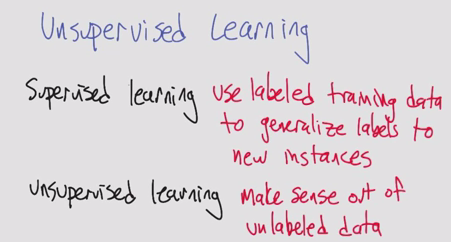 Unsupervised Learning
Supervised learning use labeled training data
to generalize labels to
new instances
unsupervised learning make sense out of
unlabeled data